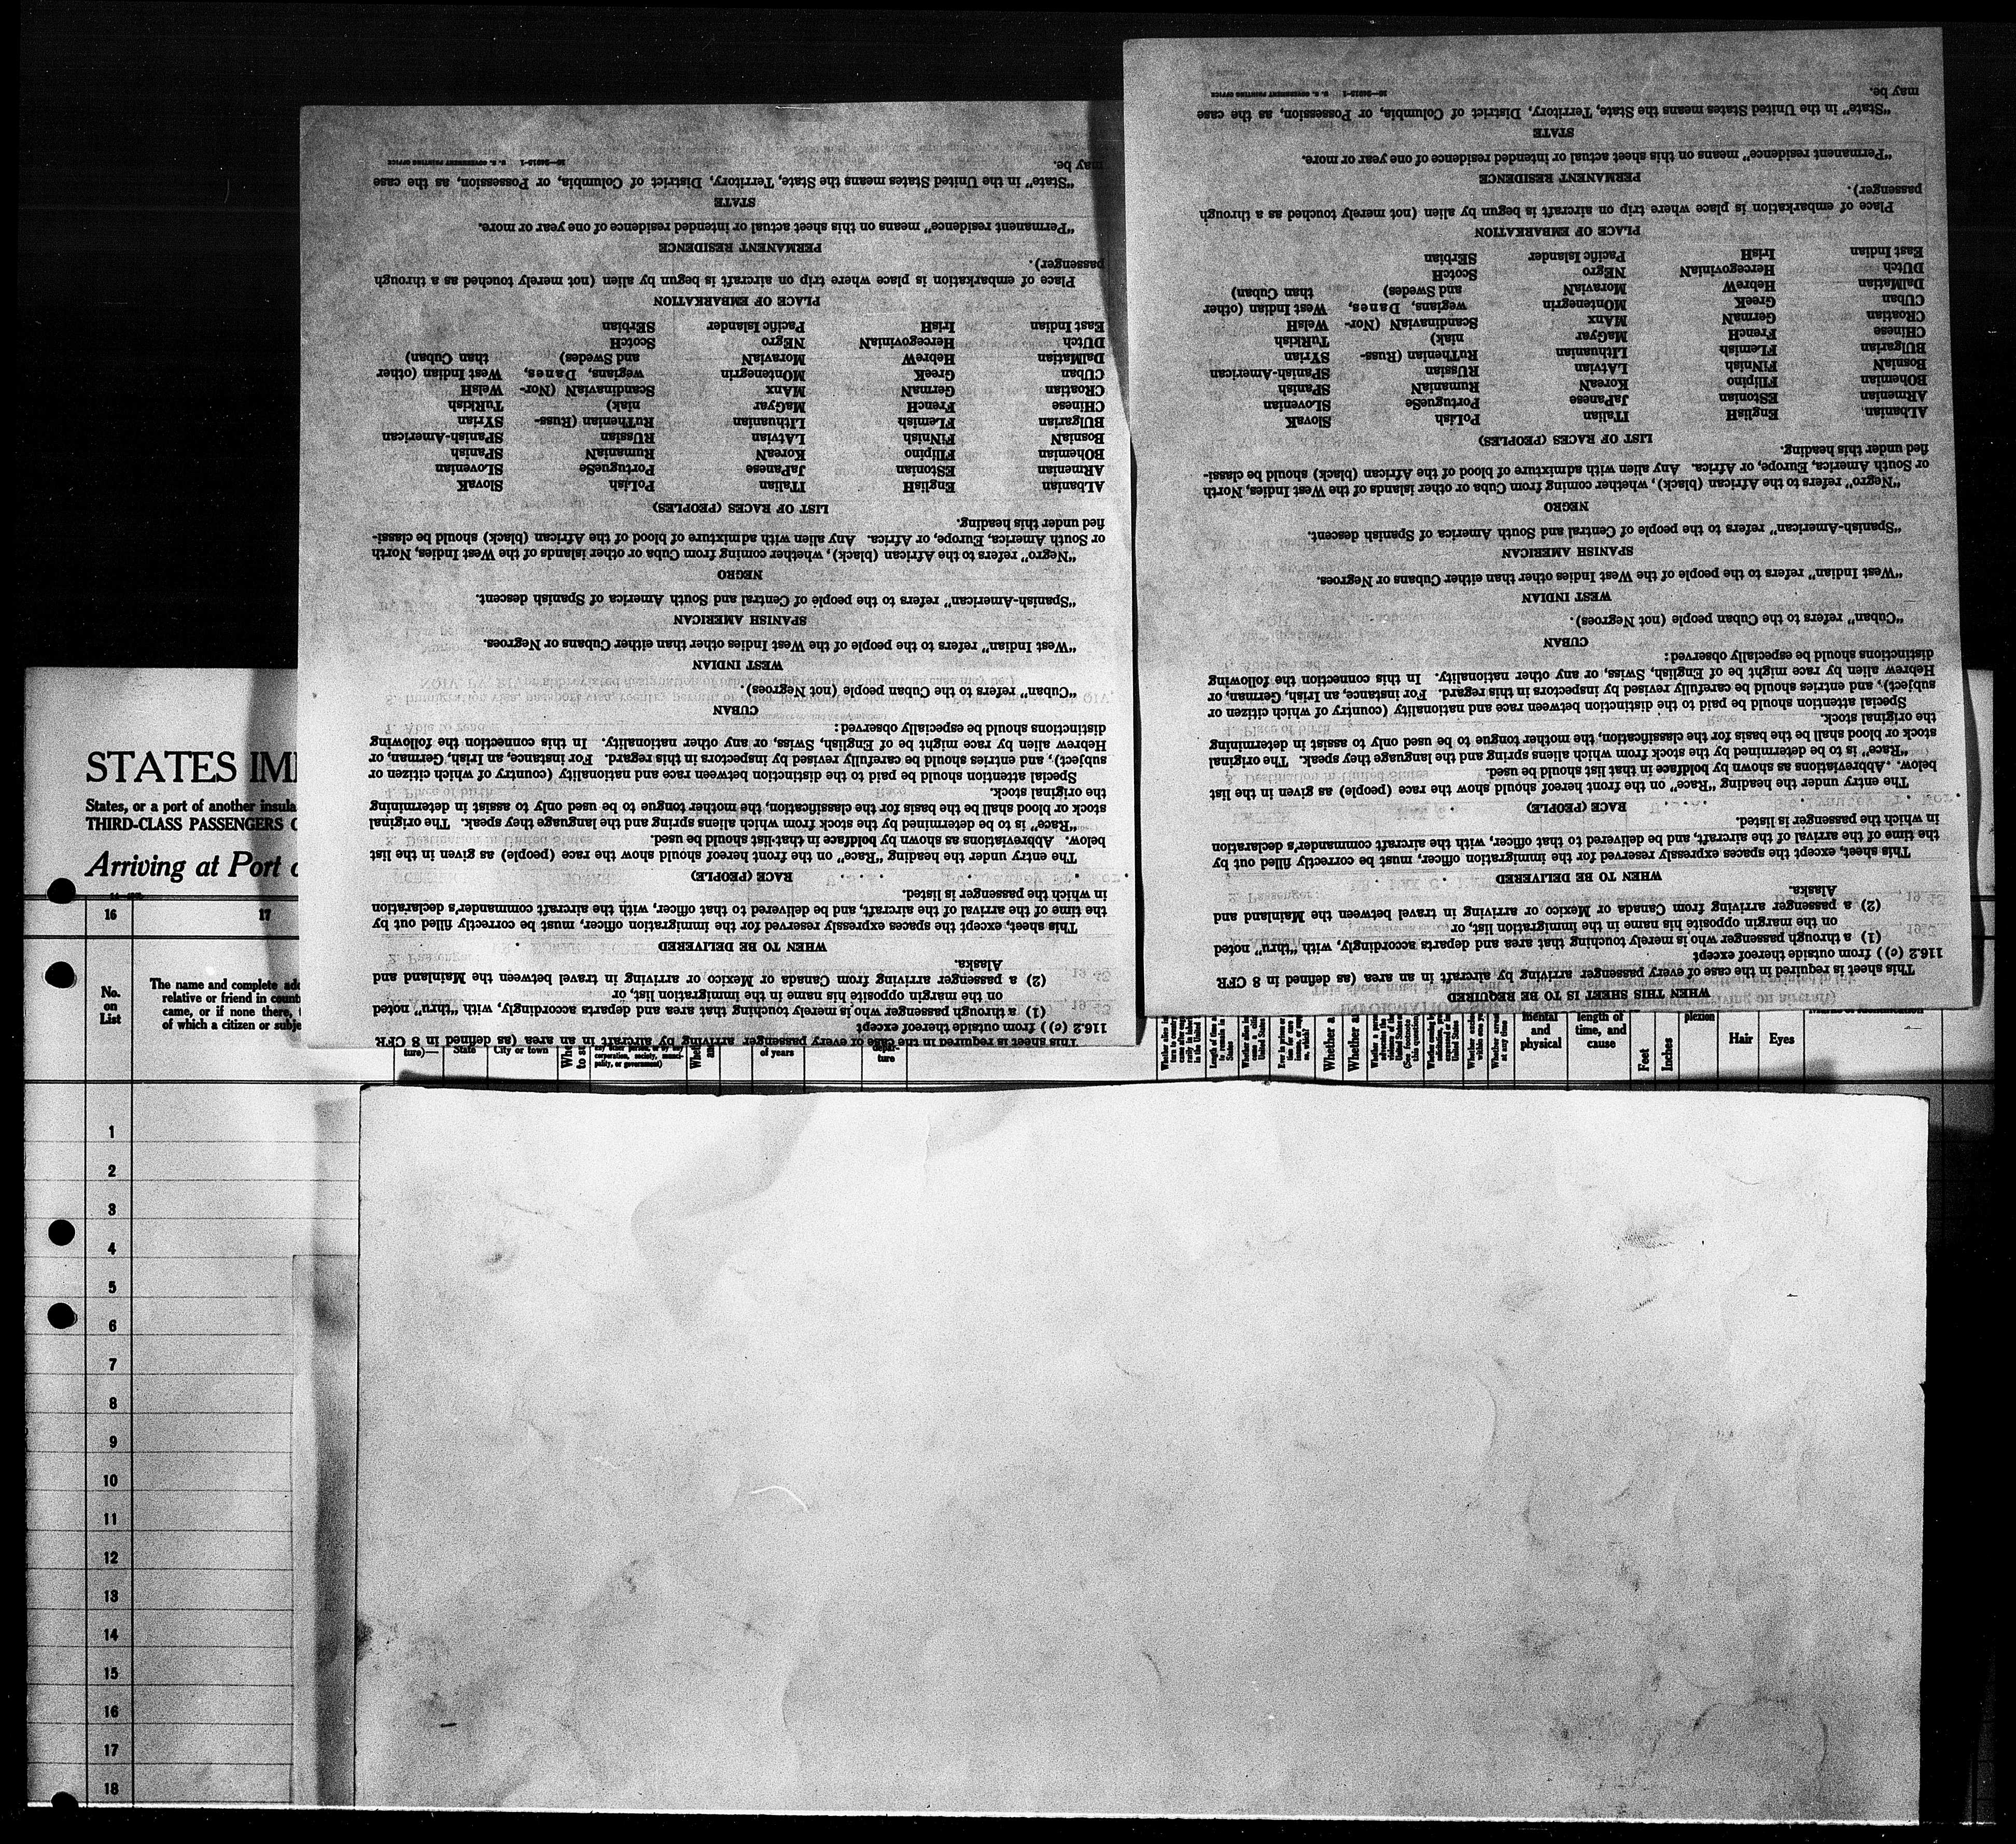 STATES IMM
States, or a port of another insula
THIRD-CLASS PASSENGERS O
Arriving at Port o
16 17
No.
on
List
The name and complete add
relative or friend in count
came, or if none there,
of which a citizen or subje
ture)—
State
City or town
of years
depar-
ture
mental
and
physical
length of
time, and
cause
Feet
Inches
plexion
Hair
Eyes
1
2
3
4
5
6
7
8
9
10
11
12
13
14
15
16
17
18
This sheet is required in the case of every passenger arriving by aircraft in an area (as defined in 8 CFR
116.2 (c)) from outside thereof except
(1) a through passenger who is merely touching that area and departs accordingly, with “thru” noted
on the margin opposite his name in the immigration list, or
(2) a passenger arriving from Canada or Mexico or arriving in travel between the Mainland and
Alaska.
WHEN TO BE DELIVERED
This sheet, except the spaces expressly reserved for the immigration officer, must be correctly filled out by
the time of the arrival of the aircraft, and be delivered to that officer, with the aircraft commander's declaration
in which the passenger is listed.
RACE (PEOPLE)
The entry under the heading “Race” on the front hereof should show the race (people) as given in the list
below. Abbreviations as shown by boldface in that list should be used.
“Race” is to be determined by the stock from which aliens spring and the language they speak. The original
stock or blood shall be the basis for the classification, the mother tongue to be used only to assist in determining
the original stock.
Special attention should be paid to the distinction between race and nationality (country of which citizen or
subject), and entries should be carefully revised by inspectors in this regard. For instance, an Irish, German, or
Hebrew alien by race might be of English, Swiss, or any other nationality. In this connection the following
distinctions should be especially observed:
CUBAN
“Cuban” refers to the Cuban people (not Negroes).
WEST INDIAN
“West Indian” refers to the people of the West Indies other than either Cubans or Negroes.
SPANISH AMERICAN
“Spanish-American” refers to the people of Central and South America of Spanish descent.
NEGRO
“Negro” refers to the African (black), whether coming from Cuba or other islands of the West Indies, North
or South America, Europe, or Africa. Any alien with admixture of blood of the African (black) should be classi-
fied under this heading.
LIST OF RACES (PEOPLES)
ALbanian EnglisH ITalian PoLish SlovaK
ARmenian EStonian JaPanese PortugueSe SLovenian
BOhemian FIlipino KoreaN RumaniaN SPanish
BosniaN FiNnish LAtvian RUssian SPanish-American
BUlgarian FLemish LIthuanian RuThenian (Russ- SYrian
CHinese FrencH MaGyar niak) TuRkish
CRoatian GermaN MAnx ScandinaviaN (Nor- WelsH
CUban GreeK MOntenegrin wegians, Danes, West Indian (other
DalMatian HebreW MoraviaN and Swedes) than Cuban)
DUtch HercegovinaN NEgro ScotcH
East Indian IrisH Pacific Islander SErbian
PLACE OF EMBARKATION
Place of embarkation is place where trip on aircraft is begun by alien (not merely touched as a through
passenger).
PERMANENT RESIDENCE
“Permanent residence” means on this sheet actual or intended residence of one year or more.
STATE
“State” in the United States means the State, Territory, District of Columbia, or Possession, as the case
may be.
16—24015-1 U. S. GOVERNMENT PRINTING OFFICE
WHEN THIS SHEET IS TO BE REQUIRED
This sheet is required in the case of every passenger arriving by aircraft in an area (as defined in 8 CFR
116.2 (c)) from outside thereof except
(1) a through passenger who is merely touching that area and departs accordingly, with “thru” noted
on the margin opposite his name in the immigration list, or
(2) a passenger arriving from Canada or Mexico or arriving in travel between the Mainland and
Alaska.
WHEN TO BE DELIVERED
This sheet, except the spaces expressly reserved for the immigration officer, must be correctly filled out by
the time of the arrival of the aircraft, and be delivered to that officer, with the aircraft commander's declaration
in which the passenger is listed.
RACE (PEOPLE)
The entry under the heading “Race” on the front hereof should show the race (people) as given in the list
below. Abbreviations as shown by boldface in that list should be used.
“Race” is to be determined by the stock from which aliens spring and the language they speak. The original
stock or blood shall be the basis for the classification, the mother tongue to be used only to assist in determining
the original stock.
Special attention should be paid to the distinction between race and nationality (country of which citizen or
subject), and entries should be carefully revised by inspectors in this regard. For instance, an Irish, German, or
Hebrew alien by race might be of English, Swiss, or any other nationality. In this connection the following
distinctions should be especially observed:
CUBAN
“Cuban” refers to the Cuban people (not Negroes).
WEST INDIAN
“West Indian” refers to the people of the West Indies other than either Cubans or Negroes.
SPANISH AMERICAN
“Spanish-American” refers to the people of Central and South America of Spanish descent.
NEGRO
“Negro” refers to the African (black), whether coming from Cuba or other islands of the West Indies, North
or South America, Europe, or Africa. Any alien with admixture of blood of the African (black) should be classi-
fied under this heading.
LIST OF RACES (PEOPLES)
ALbanian EnglisH ITalian PoLish SlovaK
ARmenian EStonian JaPanese PortugueSe SLovenian
BOhemian FIlipino KoreaN RumaniaN SPanish
BosniaN FiNnish LAtvian RUssian SPanish-American
BUlgarian FLemish LIthuanian RuThenian (Russ- SYrian
CHinese FrencH MaGyar niak) TuRkish
CRoatian GermaN MAnx ScandinaviaN (Nor- WelsH
CUban GreeK MOntenegrin wegians, Danes, West Indian (other
DalMatian HebreW MoraviaN and Swedes) than Cuban)
DUtch HercegovinaN NEgro ScotcH
East Indian IrisH Pacific Islander SErbian
PLACE OF EMBARKATION
Place of embarkation is place where trip on aircraft is begun by alien (not merely touched as a through
passenger).
PERMANENT RESIDENCE
“Permanent residence” means on this sheet actual or intended residence of one year or more.
STATE
“State” in the United States means the State, Territory, District of Columbia, or Possession, as the case
may be.
16—24015-1 U. S. GOVERNMENT PRINTING OFFICE